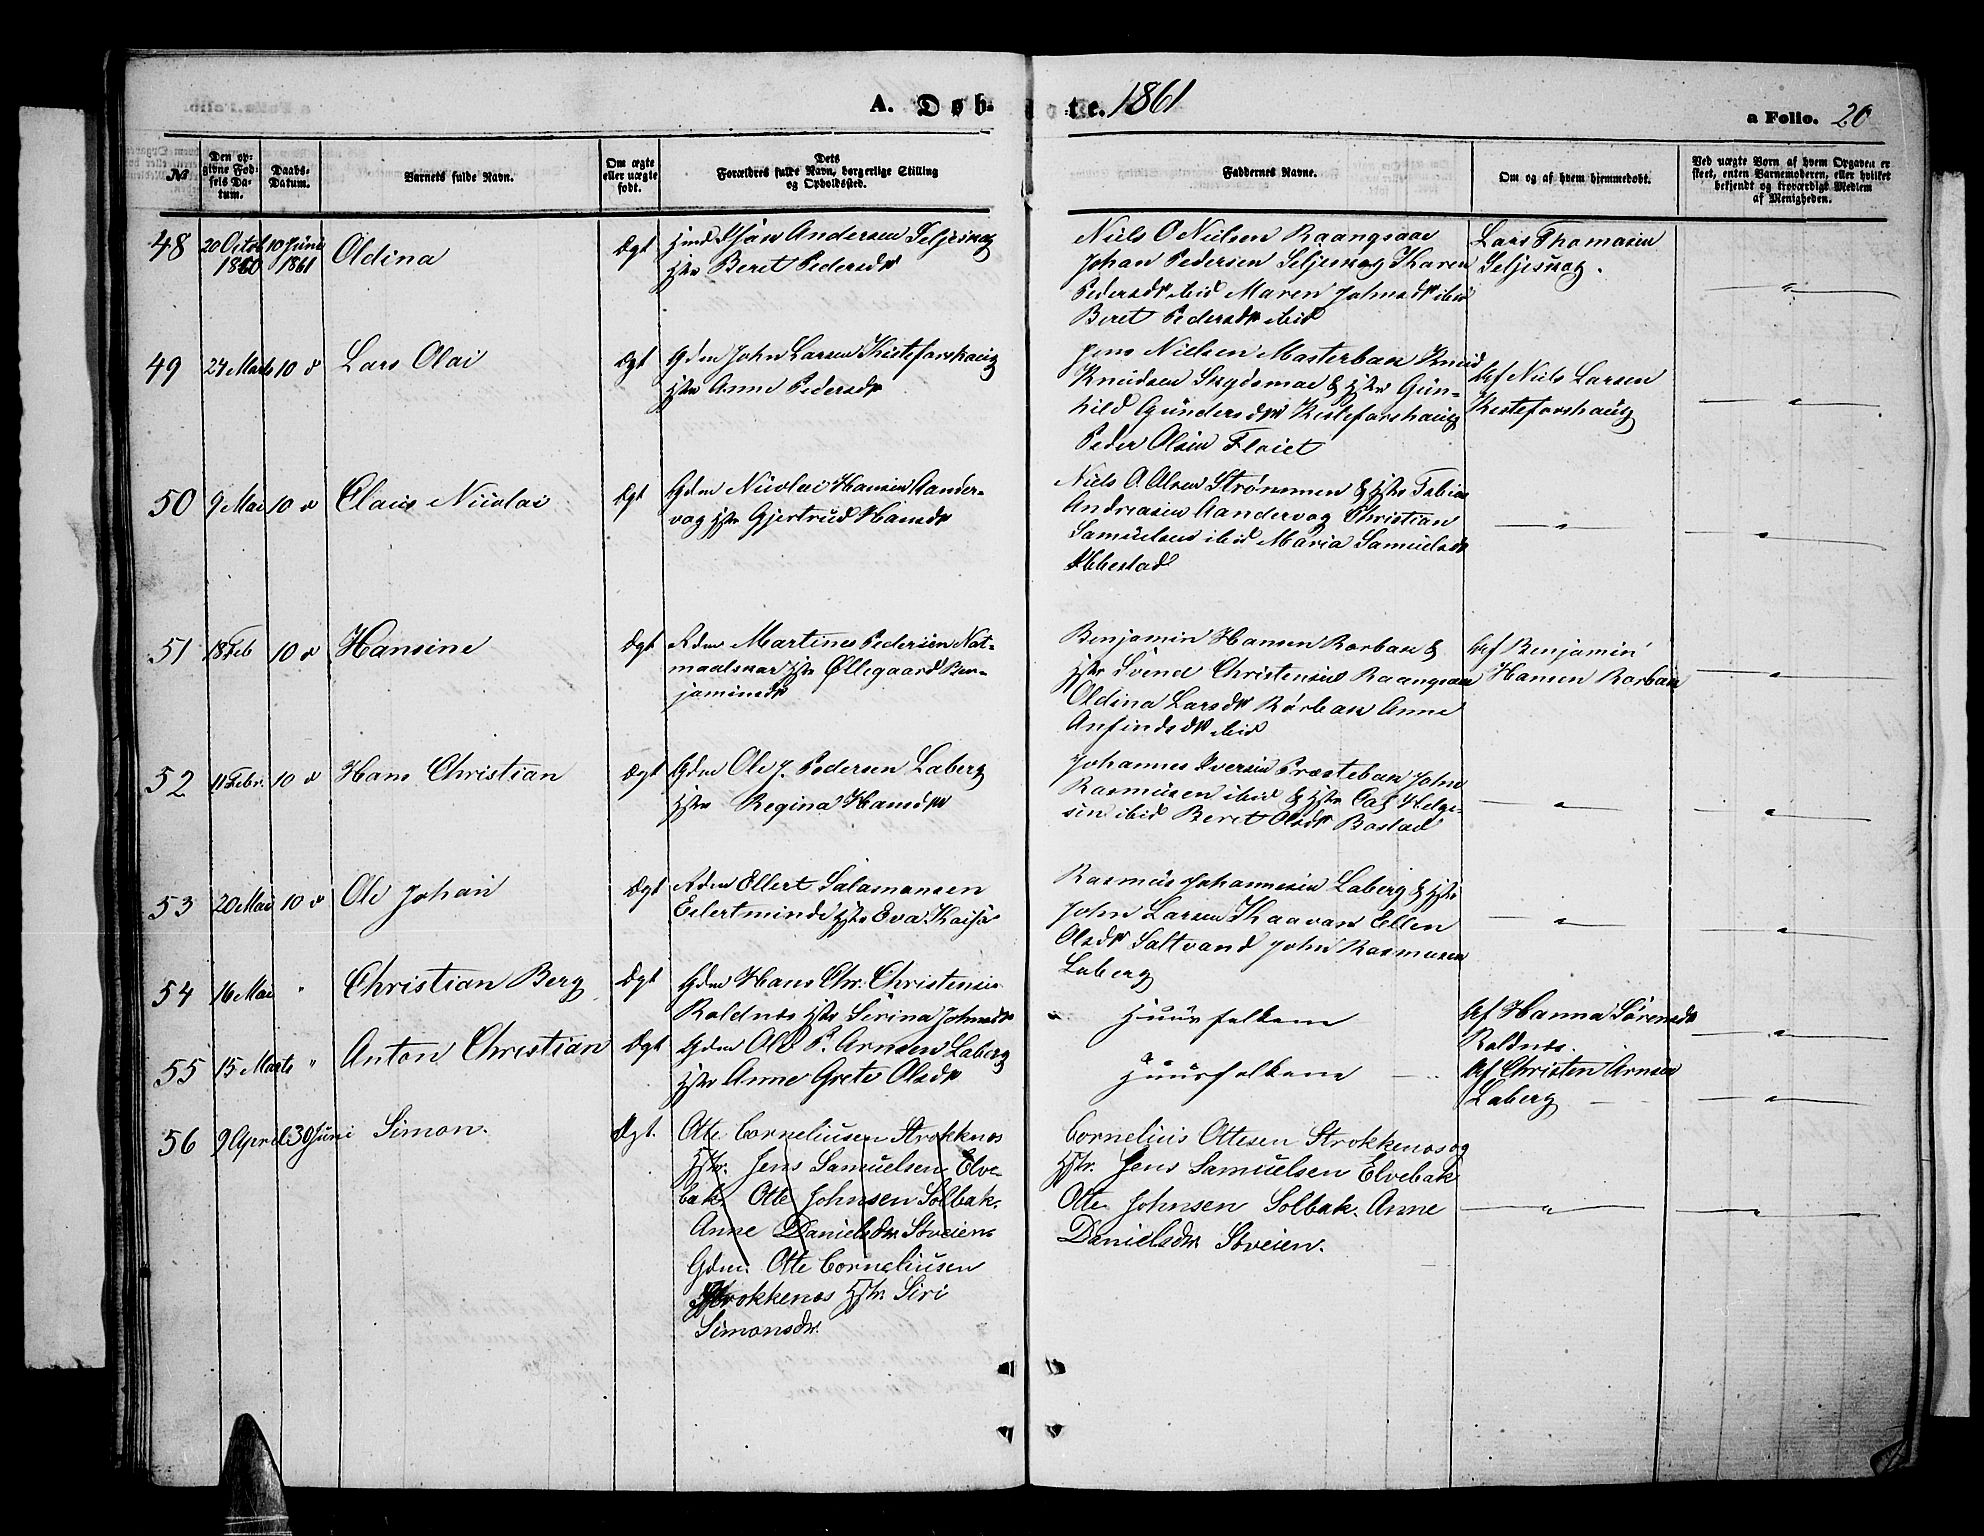 A. Døb-
te. 1861
a Folio. 20
№
Den op-
givne Fød-
sels Da-
tum.
Daabs-
Datum.
Barnets fulde Navn.
Om ægte
eller uægte
født.
Dets
Forældres fulde Navn, borgerlige Stilling
og Opholdssted.
Faddernes Navne.
Om og af hvem hjemmedøbt.
Ved uægte Børn af hvem Opgaven er
skeet, enten Barnemoderen, eller hvilket
bekjendt og troværdigt Medlem
af Menigheden.
48
20 Octob 1860
10 Juni 1861
Oldina
Ægt
Andersen Seljesnag
Hstr Beret Pedersdr
Niels O Nielsen Raangsaae
Johan Pedersen Seljesnag Karen
Pedersdr ibid Maren Johnsdr ibid
Beret Pedersdr ibid
Lars Thomasen
Seljesnag.
49
24 Marts
10 d
Lars Olai
Ægt
Gdm John Larsen Kisteforshaug
Hstr Anne Pedersdr
Jens Nielsen Masterbak Knud
Knudsen & Hstr Gun-
hild Gundersdr Kisteforshaug
Peder Olsen Floiet
Af Niels Larsen
Kisteforshaug
50
9 Mai
10 d
Claus Nicolai
Ægt
Gdm Nicolai Hansen Aander-
vag Hstr Gjertrud Hansdr
Niels O. Olsen Strømmen & Hstr Tobias
Andreasen Aandervag Christian
Samuelsen ibid Maria Samuelsdr
Ibbestad
51
18 Feb
10 d
Hansine
Ægt
Martines Pedersen Not-
maalsnar Hstr Øllegaard Ben-
jaminsdr
Benjamin Hansen Rorbak &
Hstr Svend Christensen Raangsaae
Oldina Larsdr Rørbak Anne
Anfindsdr ibid
Af Benjamin
Hansen Rorbak
52
11 Febr.
10 d
Hans Christian
Ægt
Gdm Ole J. Pedersen Laberg
Hstr Regina Hansdr
Johannes Iversen Præstebak John
Rasmusen ibid & Hstr Helge-
sen ibid Beret Olsdr Bostad
53
20 Mai
10 d
Ole Johan
Ægt
Ellert Salamonsen
Eilertminde Hstr Eva Kaisa
Rasmus Johannesen Laberg & Hstr
John Larsen Kaavan Ellen
Olsdr Saltvand John Rasmusen
Laberg
54
16 Mai
"
Christian Berg
Ægt
Gdm Hans Chr. Christensen
Roldnæs Hstr Serina Johnsdr
Huusfolkene
Af Hanna Sørensdr
Roldnæs.
55
15 Marts
"
Anton Christian
Ægt
Gdm Ole P. Arnsen Laberg
Hstr Anne Grete Olsdr
Huusfolkene
Af Christen Arnsen
Laberg
56
9 April
30 Juni
Simon.
Ægt.
Otte Corneliusen Strokkenos
Hstr. Jens Samuelsen Elve-
bak. Otte Johnsen Solbak.
Anne Danielsdr. Stveien.
Gdm. Otte Corneliusen
Strokkenos Hstr. Siri
Simonsdr.
Cornelius Ottesen Strokkenos og
Hstr. Jens Samuelsen Elvebak
Otte Johnsen Solbak. Anne
Danielsdr. Stveien.